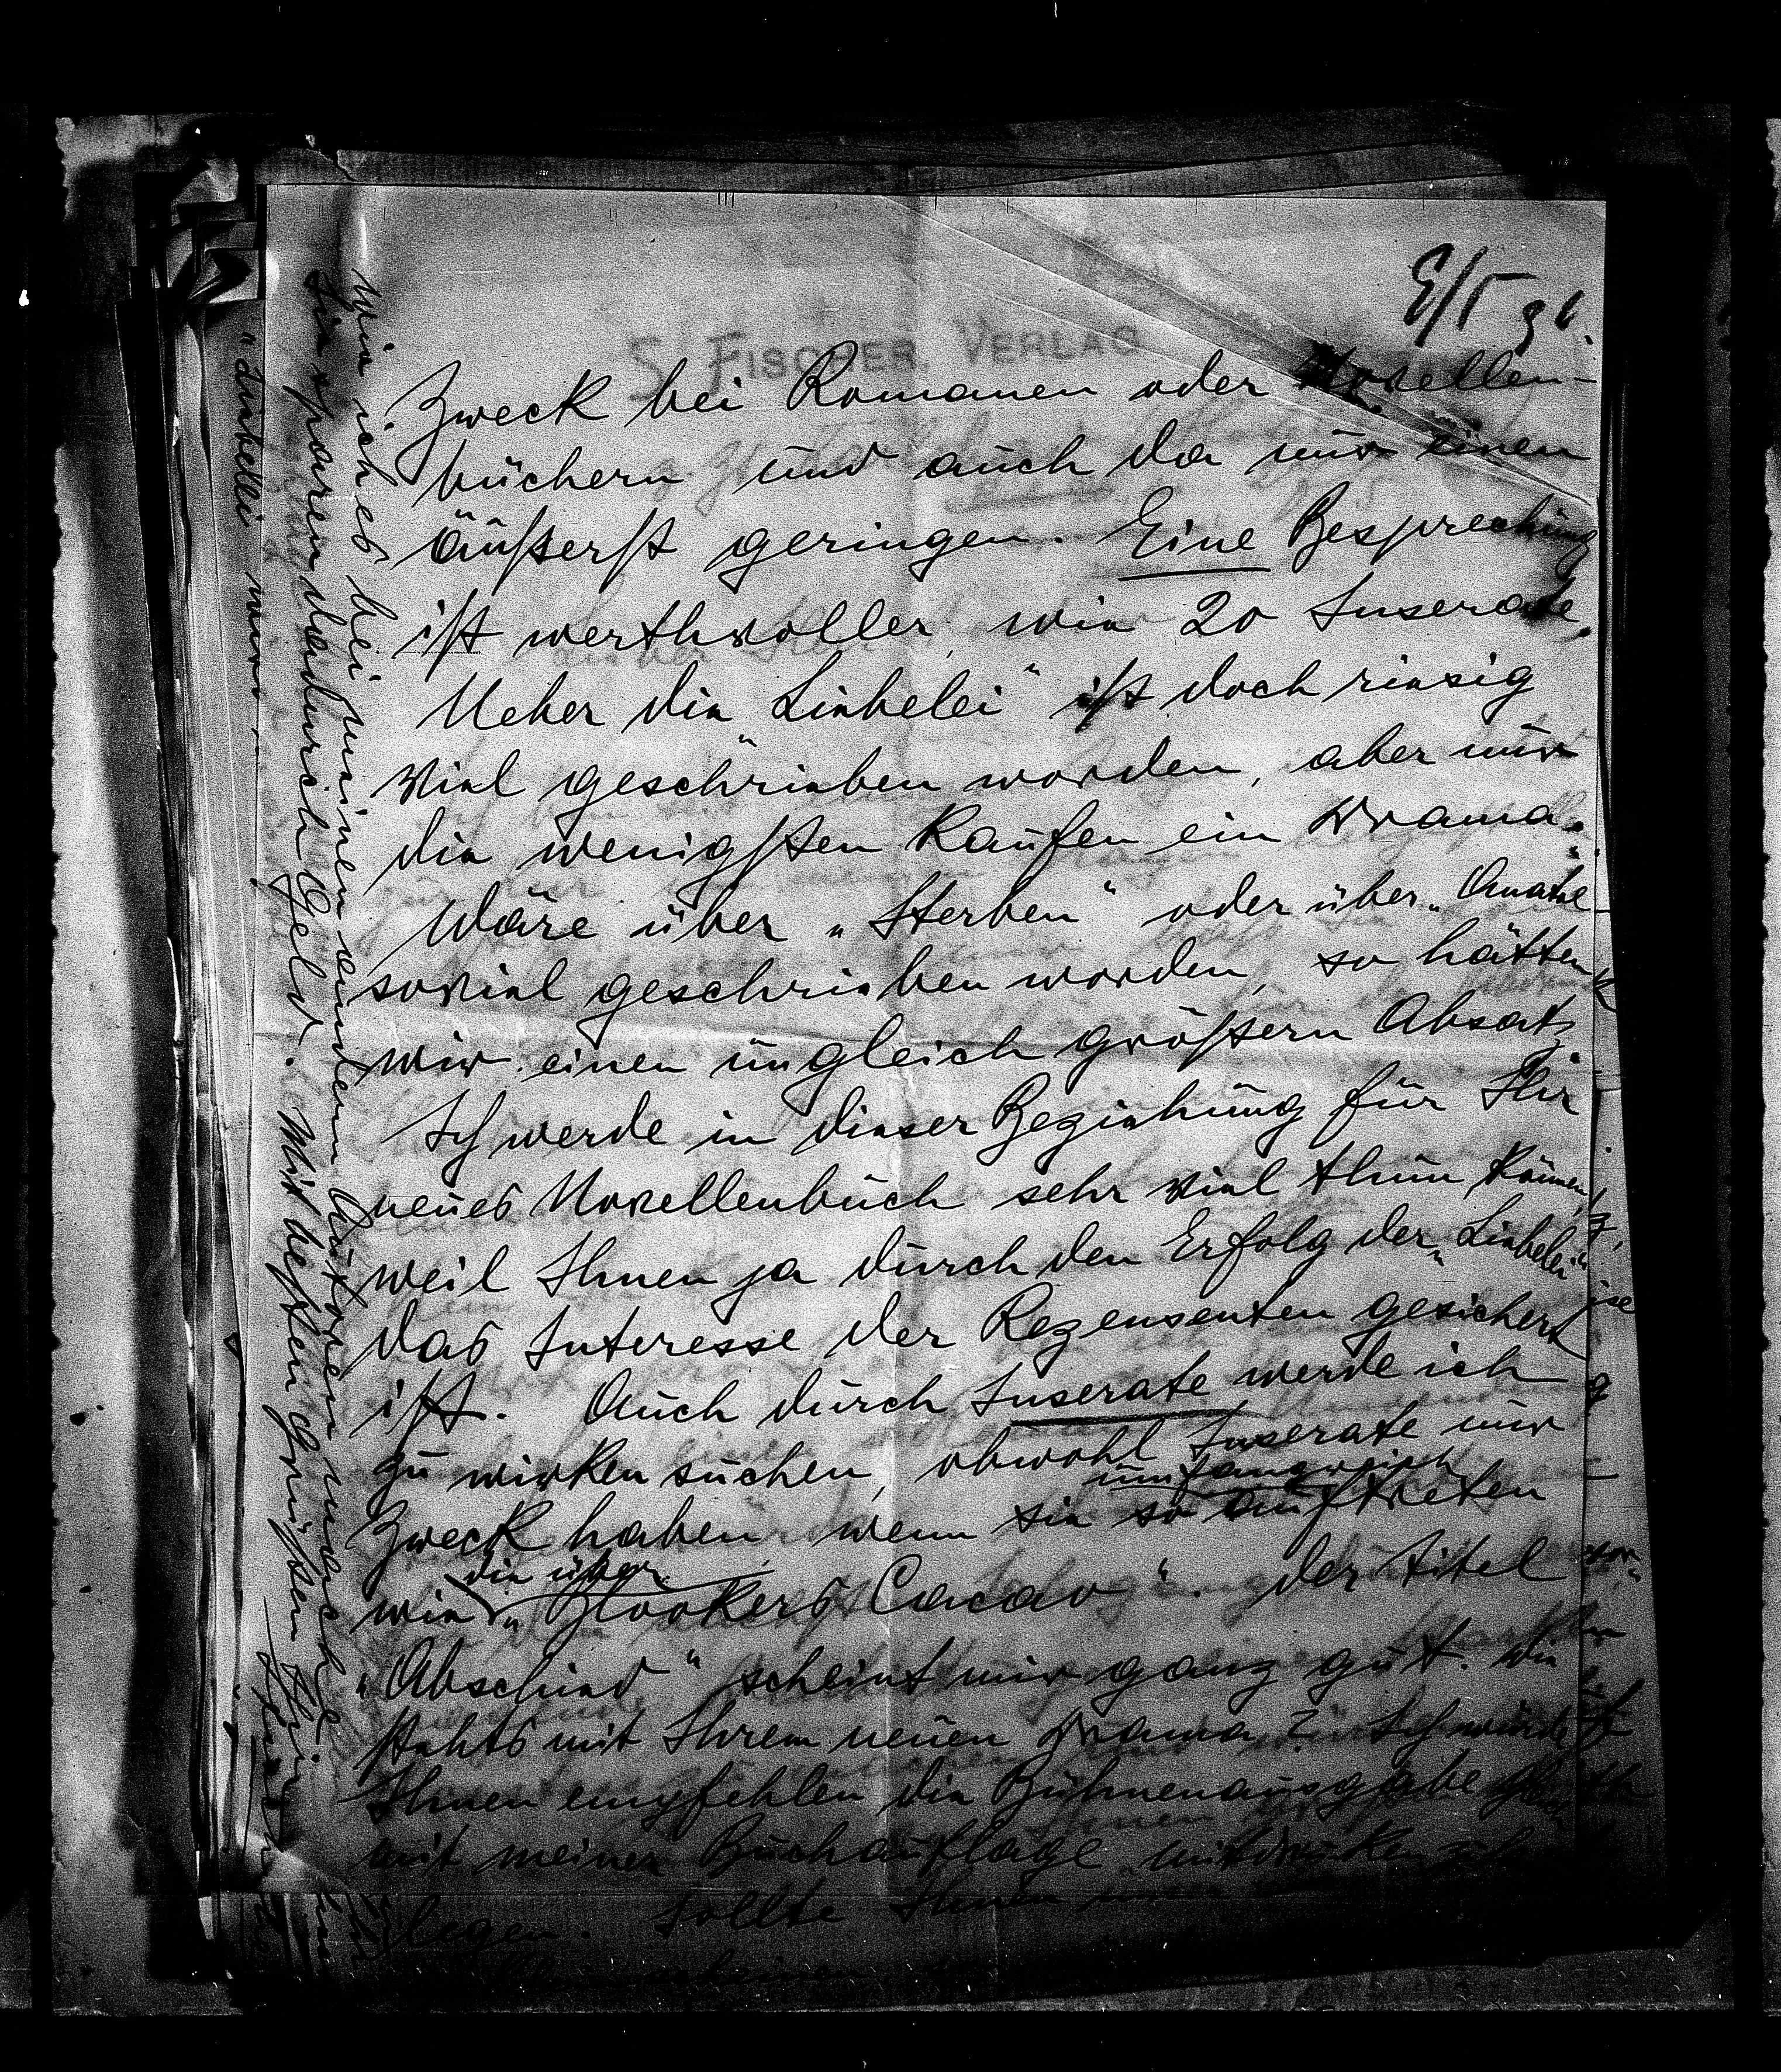 9/5 96.
S. FISCHER, VERLAG
Zweck bei Romanen oder Novellen-
büchern und auch da nur einen
äußerst geringen. Eine Besprechung
ist werthvoller, wie 20 Inserate.
Ueber die „Liebelei“ ist doch riesig
viel geschrieben worden, aber nur
die wenigsten kaufen ein Drama.
Wäre über „Sterben“ oder über „Anatol
soviel geschrieben worden, so hätten
wir einen ungleich größern Absatz
Ich werde in dieser Beziehung für Ihr
neues Novellenbuch sehr viel thun können,
weil Ihnen ja durch den Erfolg der „Liebelei“
das Interesse der Rezensenten gesichert
ist. Auch durch Inserate werde ich
zu wirken suchen, obwohl Inserate nur
umfangreich
Zweck haben, wenn sie so auftreten
die über
wie „Blookers Cacao“. Der Titel
„Abschied“ scheint mir ganz gut. Wie
stehts mit Ihrem neuen Drama? Ich würde
Ihnen empfehlen die Bühnenausgabe
mit meiner Buchauflage mitdrucken
legen. Sollte Ihnen
wie ich es bei meinen andern Autoren mache
Sie sparen dadurch Geld. Mit besten Grüßen Ihr
„Liebelei